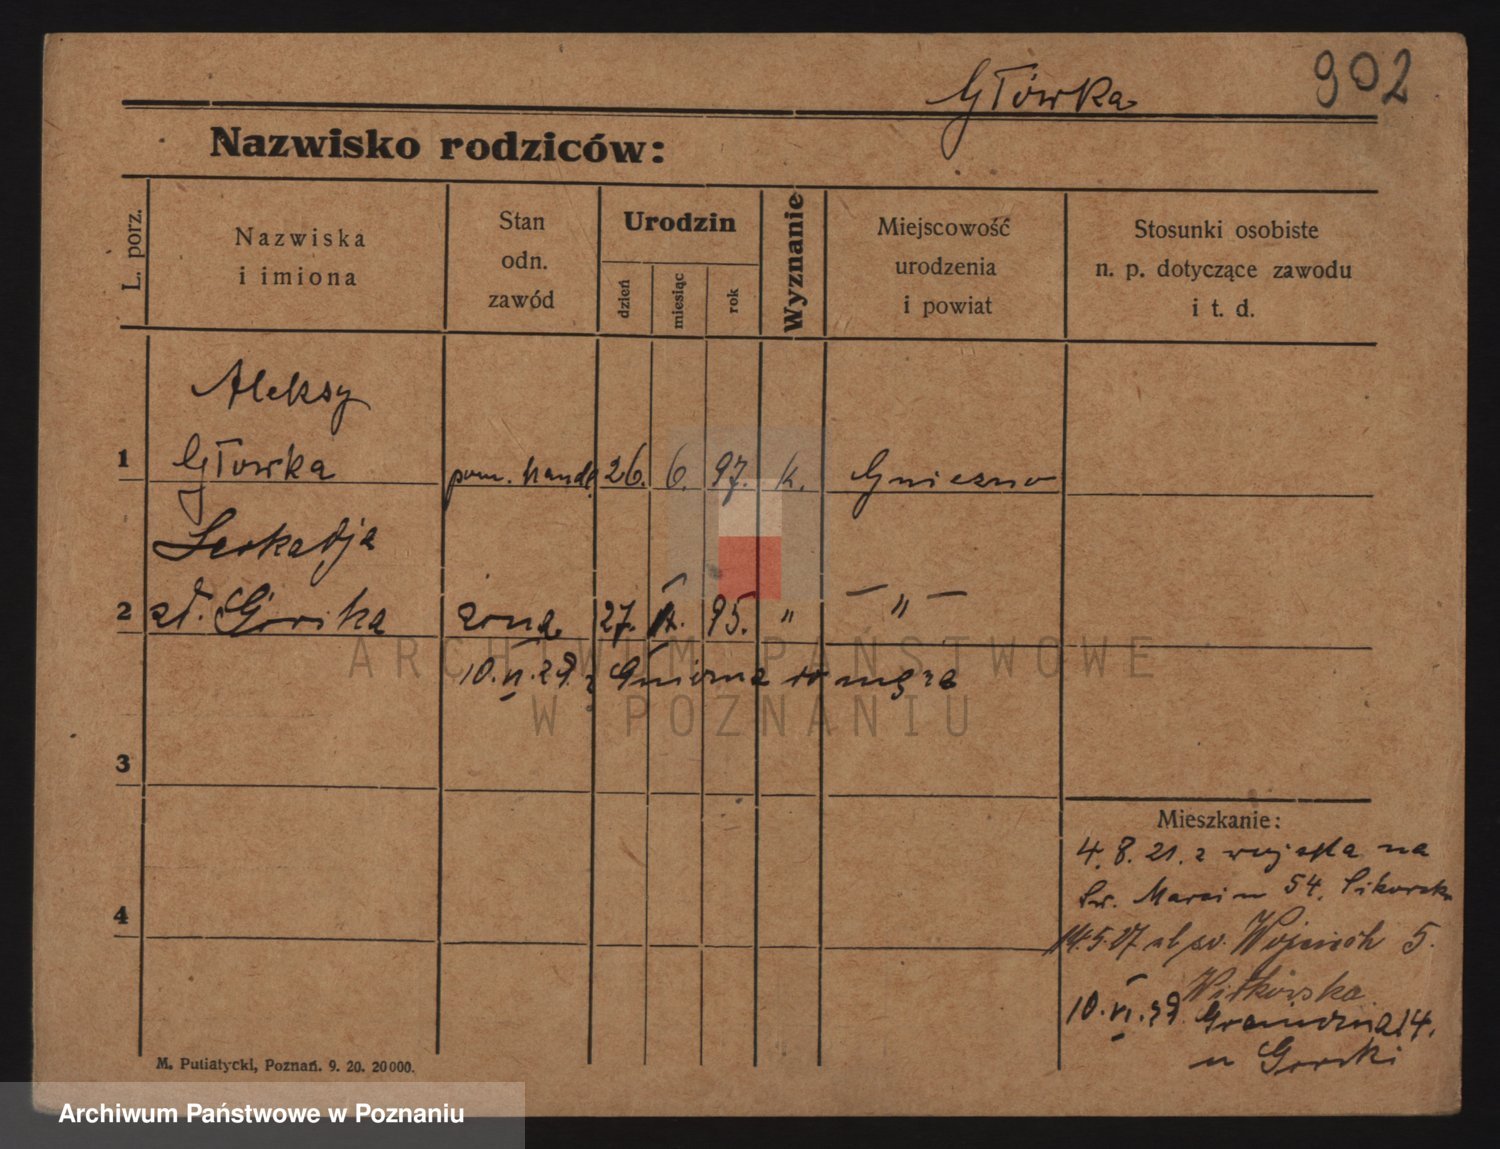 Główka
902
Nazwisko rodziców:
L. porz.
Nazwiska
i imiona
Stan
odn.
zawód
Urodzin
dzień
miesiąc
rok
Wyznanie
Miejscowość
urodzenia
i powiat
Stosunki osobiste
n. p. dotyczące zawodu
i t. d.
Aleksy
1 Głowka pom. handl. 26. 6. 97. k. Gniezno
Leokadja
2 Górska żona 27. 95. " — " —
10. VI. 29. z Gniezna do męża
3
4
Mieszkanie:
4. 8. 21. z na
Św. Marcin 54. Sikorsk
14.5.27 św. Wojciech 5.
Witkowska
10. VI. 29. 14.
u Gorski
M. Putiatycki, Poznań. 9. 20. 20000.
ARCHIWUM PAŃSTWOWE
W POZNANIU
Archiwum Państwowe w Poznaniu